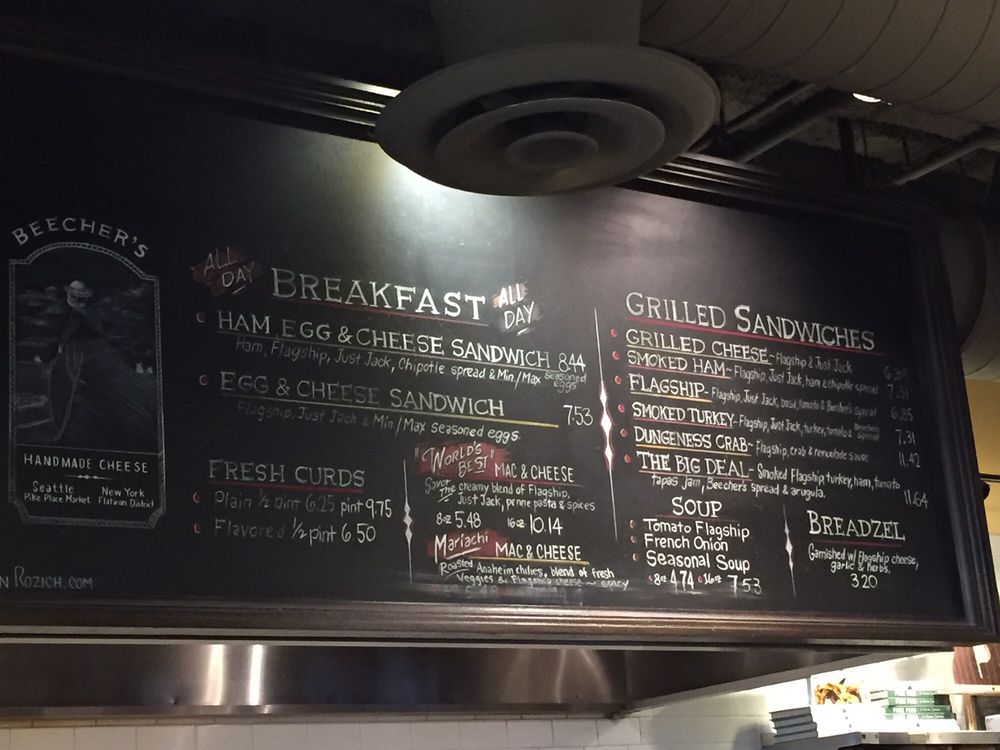 BEECHER'S
HANDMADE CHEESE
Seattle
Pike Place Market
New York
Flatiron District
N ROZICH.COM
ALL DAY
BREAKFAST
ALL DAY
HAM, EGG & CHEESE SANDWICH 8.44
Ham, Flagship, Just Jack, Chipotle spread & Min/Max seasoned eggs
EGG & CHEESE SANDWICH 7.53
Flagship, Just Jack & Min/Max seasoned eggs.
FRESH CURDS
Plain ½ pint 6.25 pint 9.75
Flavored ½ pint 6.50
"WORLD'S BEST" MAC & CHEESE
Savor the creamy blend of Flagship,
Just Jack, penne pasta & spices
8oz 5.48 16oz 10.14
Mariachi MAC & CHEESE
Roasted Anaheim chilies, blend of fresh
Veggies & Flagship cheese ~ spicy
GRILLED SANDWICHES
GRILLED CHEESE~ Flagship & Just Jack
SMOKED HAM~ Flagship, Just Jack, ham & chipotle spread 7.31
FLAGSHIP~ Flagship, Just Jack, basil, tomato & Beecher's spread 6.85
SMOKED TURKEY~ Flagship, Just Jack, turkey, tomato & Beecher's spread 7.31
DUNGENESS CRAB~ Flagship, crab & remoulade sauce 11.42
THE BIG DEAL~ Smoked Flagship, turkey, ham, tomato
tapas Jam, Beecher's spread & arugula. 11.64
SOUP
Tomato Flagship
French Onion
Seasonal Soup
8oz 4.74 16oz 7.53
BREADZEL
Garnished w/ Flagship cheese,
garlic & herbs.
3.20